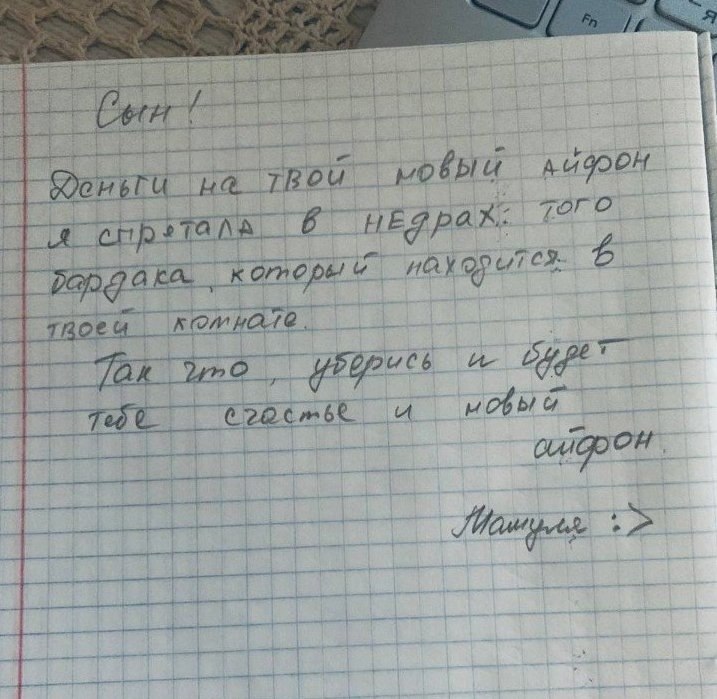 Fn
Я
Сын!
Деньги на твой новый айфон
я спрятала в недрах того
бардака, который находится в
твоей комнате.
Так что, уберись и будет
тебе счастье и новый
айфон.
Мамуля :>